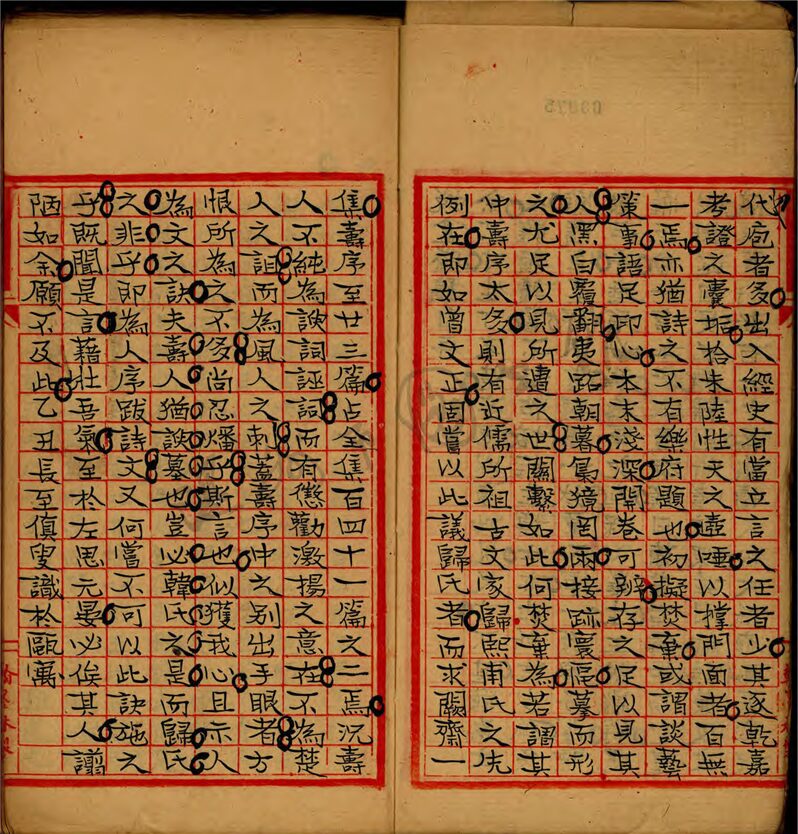 代庖者多出入經史有當立言之任者少其逐乾嘉
考證之囊垢拾朱陸性天之虛唾以撐門面者百無
一焉亦猶詩之不有樂府題也初擬焚棄或謂談藝
策事語足印心本末淺深開卷可辨存之足以見其
人黑白覆翻夷跖朝暮梟獍罔兩接跡寰區摹而形
之尤足以見所遭之世關繫如此何焚棄為若謂其
中壽序太多則有近儒所祖古文家歸熙甫氏之先
例在即如曾文正固嘗以此議歸氏者而求闕齋一
集壽序至廿三篇占全集百四十一篇之二焉況壽
人不純為諛詞誣謟而有懲勸激揚之意在不為楚
人之詛而為風人之刺蓋壽序中之別出手眼者方
恨所為之不多尚忍燔乎斯言也似獲我心且亦人
為文之訣夫壽人猶諛墓也豈以韓氏之是而歸氏
之非乎即為人序跋詩文又何嘗不可以此訣施之
乎既聞是言藉壯吾氣至於左思元晏必俟其人譾
陋如余願不及此乙丑長至偵叟識於甌寓